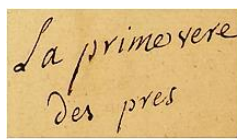 La primevere
des pres